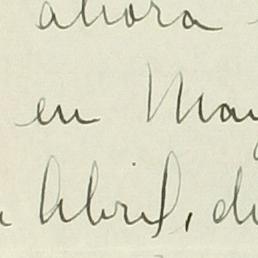 ahora
en May
Abril, de